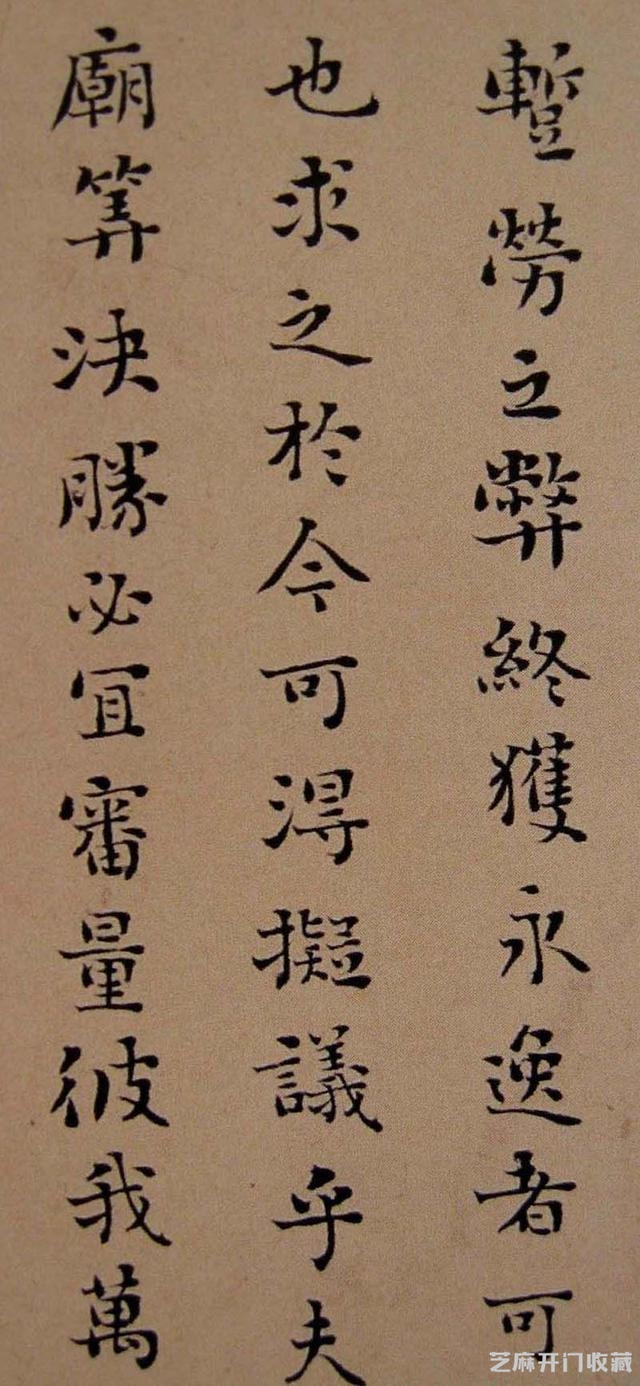 蹔勞之弊終獲永逸者可
也求之於今可得擬議乎夫
廟筭決勝必宜審量彼我萬
芝麻开门收藏